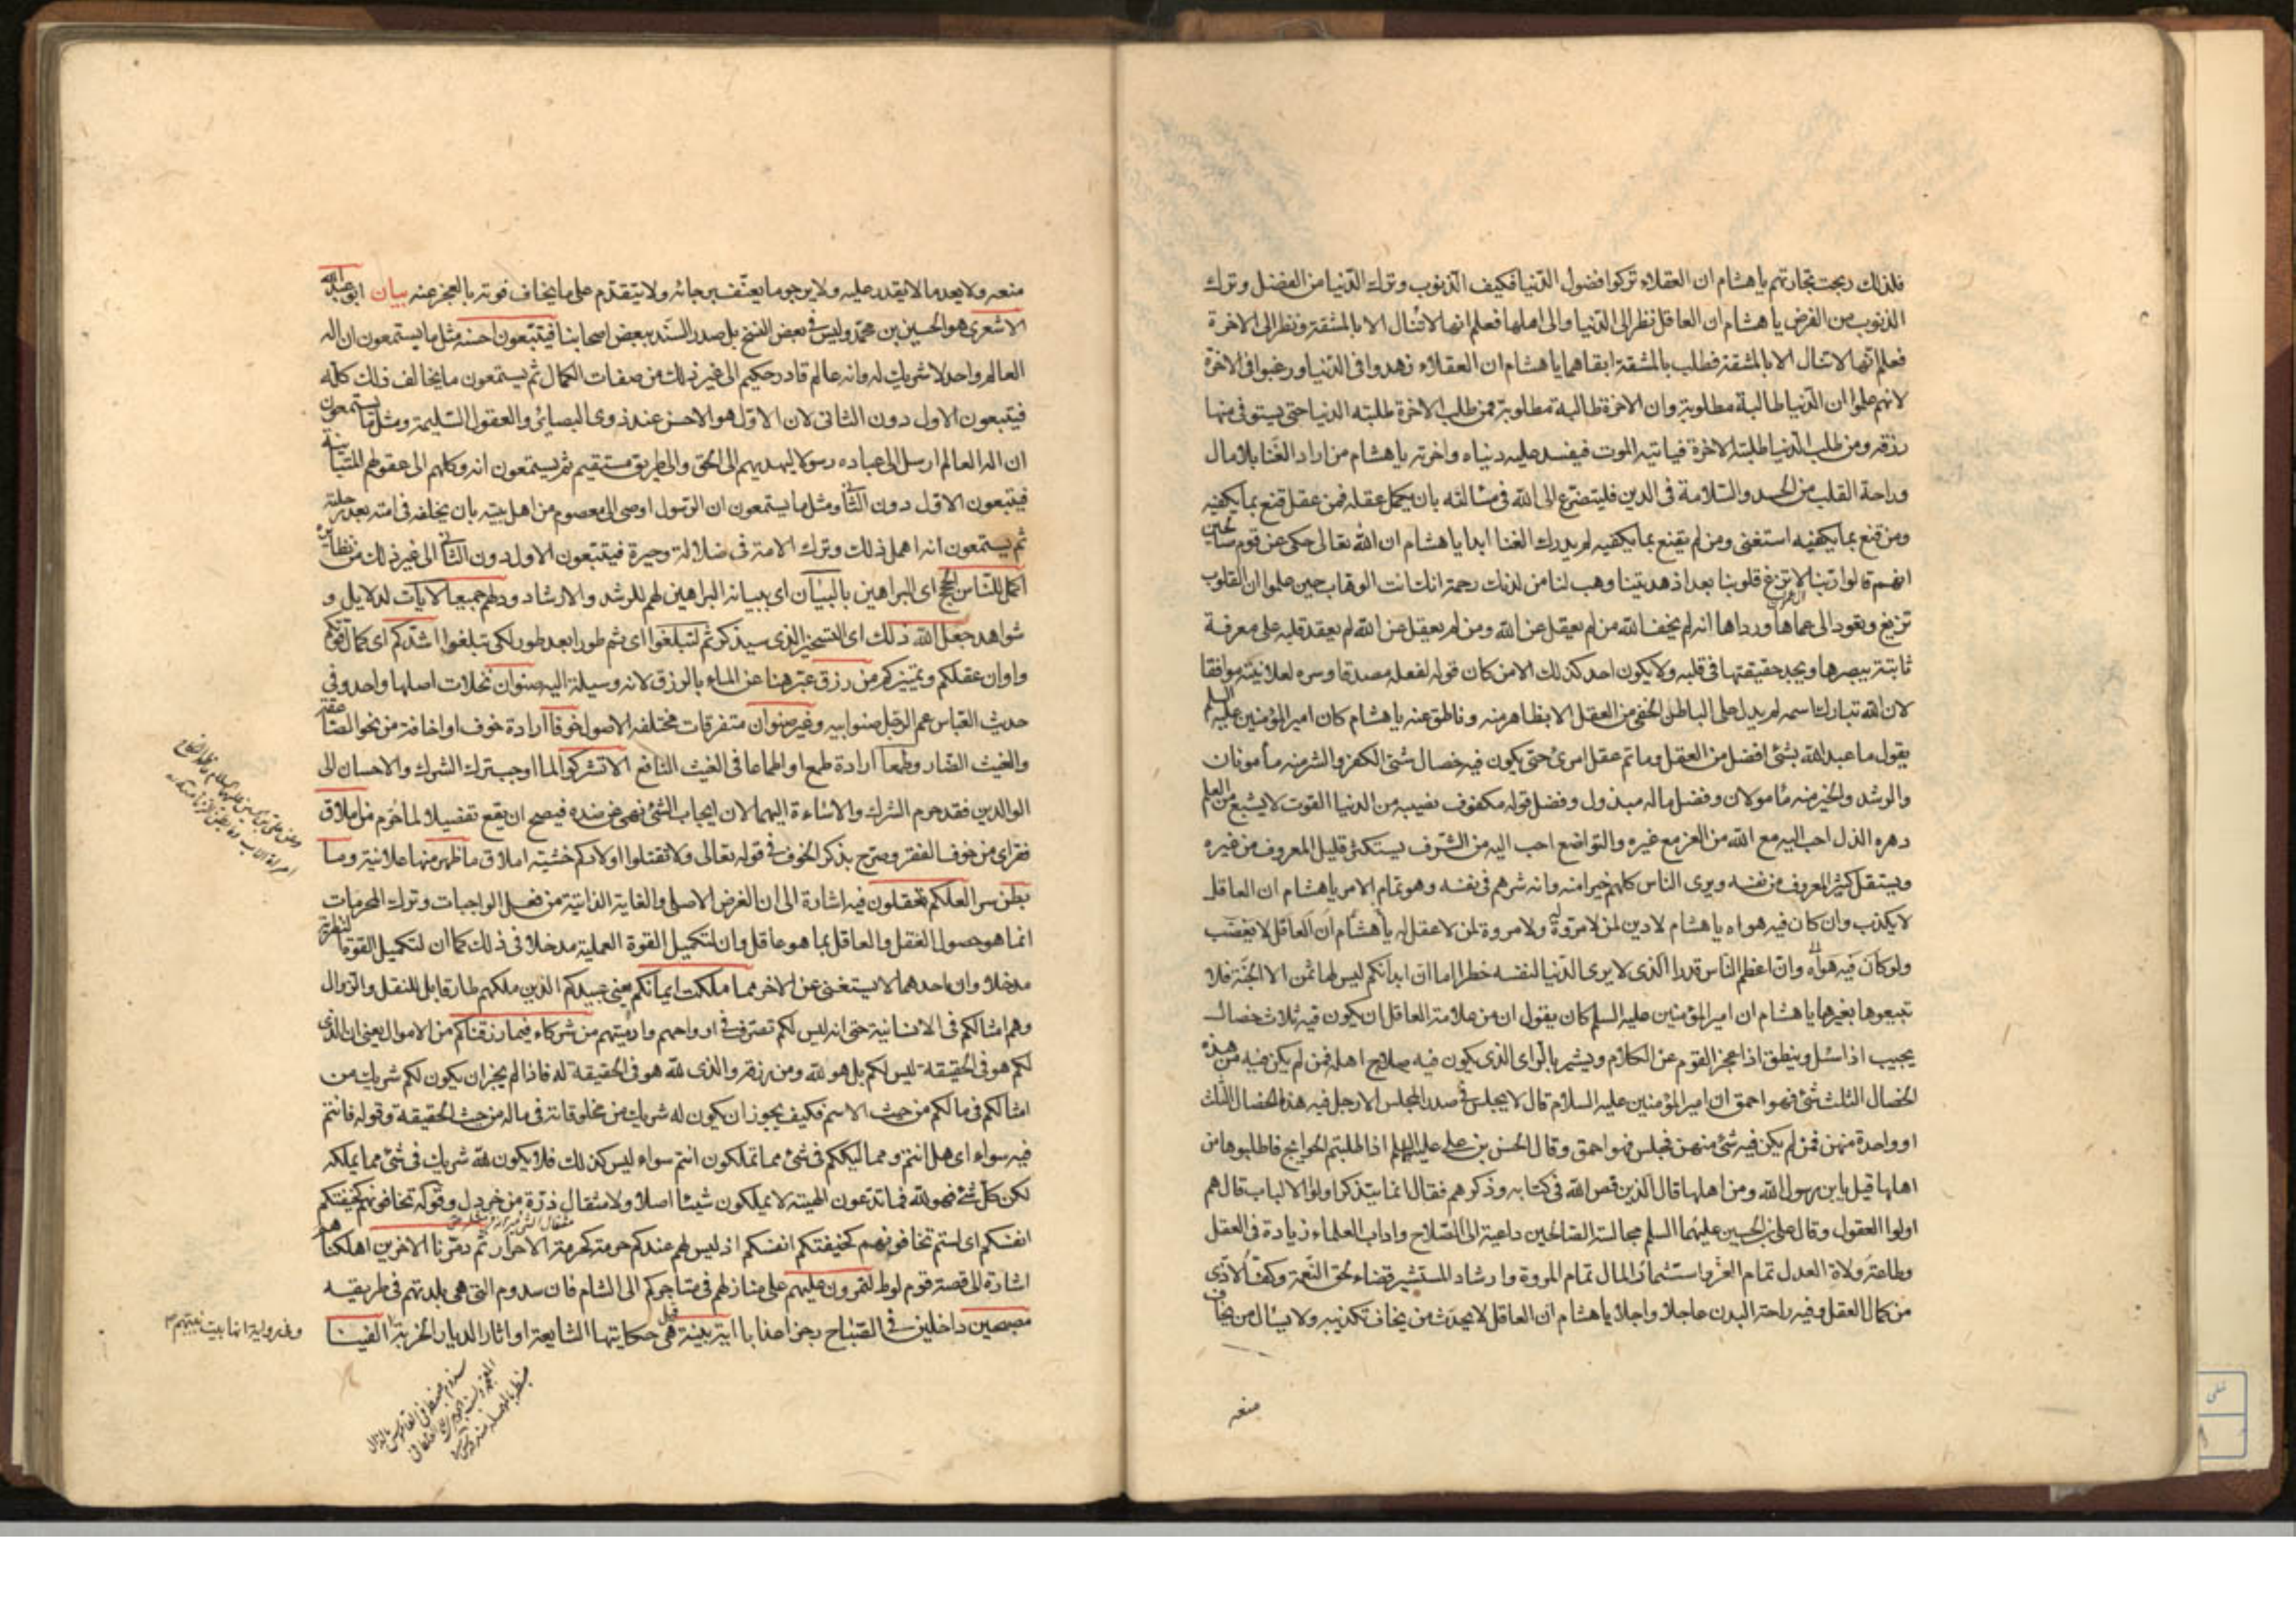 فلذلك ربحت تجارتهم يا هشام ان العقلاء تركوا فضول الدنيا فكيف الذنوب وترك الدنيا من الفضل وترك
الذنوب من الفرض يا هشام ان العاقل نظر الى الدنيا والى اهلها فعلم انها لا تنال الا بالمشقة ونظر الى الاخرة
فعلم انها لا تنال الا بالمشقة فطلب بالمشقة ابقاهما يا هشام ان العقلاء زهدوا فى الدنيا ورغبوا فى الاخرة
لانهم علموا ان الدنيا طالبة مطلوبة وان الاخرة طالبة مطلوبة فمن طلب الاخرة طلبته الدنيا حتى يستوفى منها
رزقه ومن طلب الدنيا طلبته الاخرة فياتيه الموت فيفسد عليه دنياه واخرته يا هشام من اراد الغنا بلا مال
وراحة القلب من الحسد والسلامة فى الدين فليتضرع الى الله فى مسالته بان يكمل عقله فمن عقل قنع بما يكفيه
ومن قنع بما يكفيه استغنى ومن لم يقنع بما يكفيه لم يدرك الغنا ابدا يا هشام ان الله تعالى حكى عن قوم صالحين
انهم قالوا ربنا لا تزغ قلوبنا بعد اذ هديتنا وهب لنا من لدنك رحمة انك انت الوهاب حين علموا ان القلوب
تزيغ وتعود الى عماها ورداها انه لم يخف الله من لم يعقل عن الله ومن لم يعقل عن الله لم يعقد قلبه على معرفة
ثابتة يبصرها ويجد حقيقتها فى قلبه ولا يكون احد كذلك الا من كان قوله لفعله مصدقا وسره لعلانيته موافقا
لان الله تبارك اسمه لم يدل على الباطن الخفى من العقل الا بظاهر منه وناطق عنه يا هشام كان امير المؤمنين عليه السلم
يقول ما عبد الله بشئ افضل من العقل وما تم عقل امرئ حتى يكون فيه خصال شتى الكفر والشر منه مأمونان
والرشد والخير منه مأمولان وفضل ماله مبذول وفضل قوله مكفوف نصيبه من الدنيا القوت لا يشبع من العلم
دهره الذل احب اليه مع الله من العز مع غيره والتواضع احب اليه من الشرف يستكثر قليل المعروف من غيره
ويستقل كثير المعروف من نفسه ويرى الناس كلهم خيرا منه وانه شرهم فى نفسه وهو تمام الامر يا هشام ان العاقل
لا يكذب وان كان فيه هواه يا هشام لا دين لمن لا مروة له ولا مروة لمن لا عقل له يا هشام ان العاقل لا يغضب
ولو كان فيه هواه وان اعظم الناس قدرا الذى لا يرى الدنيا لنفسه خطرا اما ان ابدانكم ليس لها ثمن الا الجنة فلا
تبيعوها بغيرها يا هشام ان امير المؤمنين عليه السلم كان يقول ان من علامة العاقل ان يكون فيه ثلاث خصال
يجيب اذا سئل وينطق اذا عجز القوم عن الكلام ويشير بالراى الذى يكون فيه صلاح اهله فمن لم يكن فيه من هذه
الخصال الثلث شئ فهو احمق ان امير المؤمنين عليه السلام قال لا يجلس فى صدر المجلس الا رجل فيه هذه الخصال الثلث
او واحدة منهن فمن لم يكن فيه شئ منهن فجلس فهو احمق وقال الحسن بن على عليهما السلم اذا طلبتم الحوائج فاطلبوها من
اهلها قيل يا بن رسول الله ومن اهلها قال الذين قص الله فى كتابه وذكرهم فقال انما يتذكر اولوا الالباب قال هم
اولوا العقول وقال على بن الحسين عليهما السلم مجالسة الصالحين داعية الى الصلاح واداب العلماء زيادة فى العقل
وطاعة ولاة العدل تمام العز واستثمار المال تمام المروة وارشاد المستشير قضاء لحق النعمة وكف الاذى
من كمال العقل وفيه راحة البدن عاجلا واجلا يا هشام ان العاقل لا يحدث من يخاف تكذيبه ولا يسأل من يخاف
منعه
منعه ولا يعد ما لا يقدر عليه ولا يرجو ما يعنف برجائه ولا يتقدم على ما يخاف فوته بالعجز عنه بيان ابو عبد الله
الاشعرى هو الحسين بن محمد وليس فى بعض النسخ بل صدر السند ببعض اصحابنا فيتبعون احسنه مثل ما يستمعون ان اله
العالم واحد لا شريك له وانه عالم قادر حكيم الى غير ذلك من صفات الكمال ثم يستمعون ما يخالف ذلك كله
فيتبعون الاول دون الثانى لان الاول هو الاحسن عند ذوى البصائر والعقول السليمة ومثل ما يستمعون
ان اله العالم ارسل الى عباده رسولا يهديهم الى الحق والى طريق مستقيم ثم يستمعون انه وكلهم الى عقولهم المتباينة
فيتبعون الاول دون الثانى ومثل ما يستمعون ان الرسول اوصى الى معصوم من اهل بيته بان يخلفه فى امته بعد رحلته
ثم يستمعون انه اهمل ذلك وترك الامة فى ضلالة وحيرة فيتبعون الاول دون الثانى الى غير ذلك من نظايره
اكمل للناس الحجج اى البراهين بالبيان اى ببيانه البراهين لهم للرشد والارشاد ودلهم جميعا الايات لدلايل و
شواهد جعل الله ذلك اى التسخير الذى سيذكر ثم لتبلغوا اى ثم طورا بعد طور لكى تبلغوا اشدكم اى كمال قوتكم
واوان عقلكم وتمييزكم من رزق عبر هنا عن الماء بالرزق لانه وسيلة اليه صنوان نخلات اصلها واحد وفى
حديث العباس عم الرجل صنو ابيه وغير صنوان متفرقات مختلفه الاصول خوفا ارادة خوف او اخافة من نحو الصاعقة
والغيث الضار وطمعا ارادة طمع او اطماعا فى الغيث النافع الا تشركوا لما اوجب ترك الشرك والاحسان الى
الوالدين فقد حرم الشرك والاساءة اليهما لان ايجاب الشئ نهى عن ضده فيصح ان يقع تفصيلا لما حرم من املاق
فقر اى من خوف الفقر وصرح بذكر الخوف فى قوله تعالى ولا تقتلوا اولادكم خشية املاق ما ظهر منها علانية وما
بطن سر العلكم تعقلون فيه اشارة الى ان الغرض الاصلى والغاية الذاتية من فعل الواجبات وترك المحرمات
انما هو حصول العقل والعاقل بما هو عاقل وان لتكميل القوة العملية مدخلا فى ذلك كما ان لتكميل القوة النظرية
مدخلا وان احدهما لا يستغنى عن الاخر مما ملكت ايمانكم يعنى عبيدكم الذين ملكهم طار قابل للنقل والزوال
وهم امثالكم فى الانسانية حتى انه ليس لكم تصرف فى ارواحهم وادميتهم من شركاء فيما رزقناكم من الاموال يعنى ان الذى
لكم هو فى الحقيقة ليس لكم بل هو لله ومن رزقه والذى لله هو فى الحقيقة له فاذا لم يجز ان يكون لكم شريك من
امثالكم فى مالكم من حيث الاسم فكيف يجوز ان يكون له شريك من مخلوقاته فى ماله من حيث الحقيقة وقوله فانتم
فيه سواء اى هل انتم ومماليككم فى شئ مما تملكون انتم سواء ليس كذلك فلا يكون لله شريك فى شئ مما يملكه
لكن كل شئ فهو لله فما تدعون الهيته لا يملكون شيئا اصلا ولا مثقال ذرة من خردل وقوله تخافونهم كخيفتكم
انفسكم اى لستم تخافونهم كخيفتكم انفسكم اذ ليس لهم عندكم حرمة كحرمة الاحرار ثم دمرنا الاخرين اهلكناهم
اشارة الى قصة قوم لوط لتمرون عليهم على منازلهم فى متاجركم الى الشام فان سدوم التى هى بلدتهم فى طريقه
مصبحين داخلين فى الصباح رجزا عذابا اية بينة قيل هى حكايتها الشايعة او اثار الديار الخربة الفينا